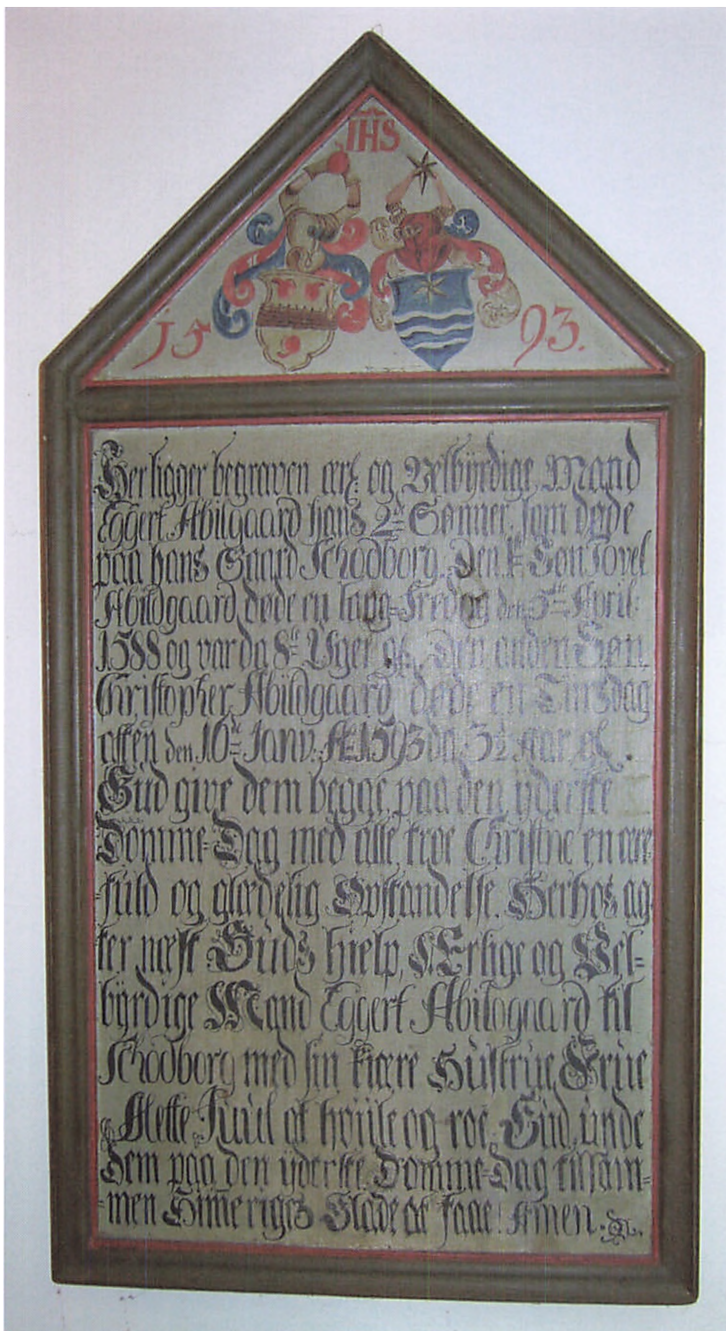 IHS
15 93.
Her ligger begraven ærl: og Velbÿrdige Mand
Eggert Abilgaard hans 2de Sønner, som døde
paa hans Gaard Schodborg. Den 1te Søn Tovel
Abildgaard døde en lang-Fredag den 5te April:
1588 og var da 8te Uger gl. Den anden Søn
Christopher Abildgaard døde en Tiirsdag
aften den 16de Janv: 1593 da 3½ Aar gl.
Gud give dem begge paa den ÿderste
Domme-Dag med alle troe Christne en ære-
-fuld og glædelig Opstandelse. Herhos ag-
ter næst Guds hielp, Ærlige og Vel-
bÿrdige Mand Eggert Abildgaard til
Schodborg med sin kiære Hüstrüe, Früe
Juul at hvüle og roe. Gud ünde
Dem paa den ÿderste Domme-Dag tilsam-
-men Himmeriges Glæde at faae! Amen.